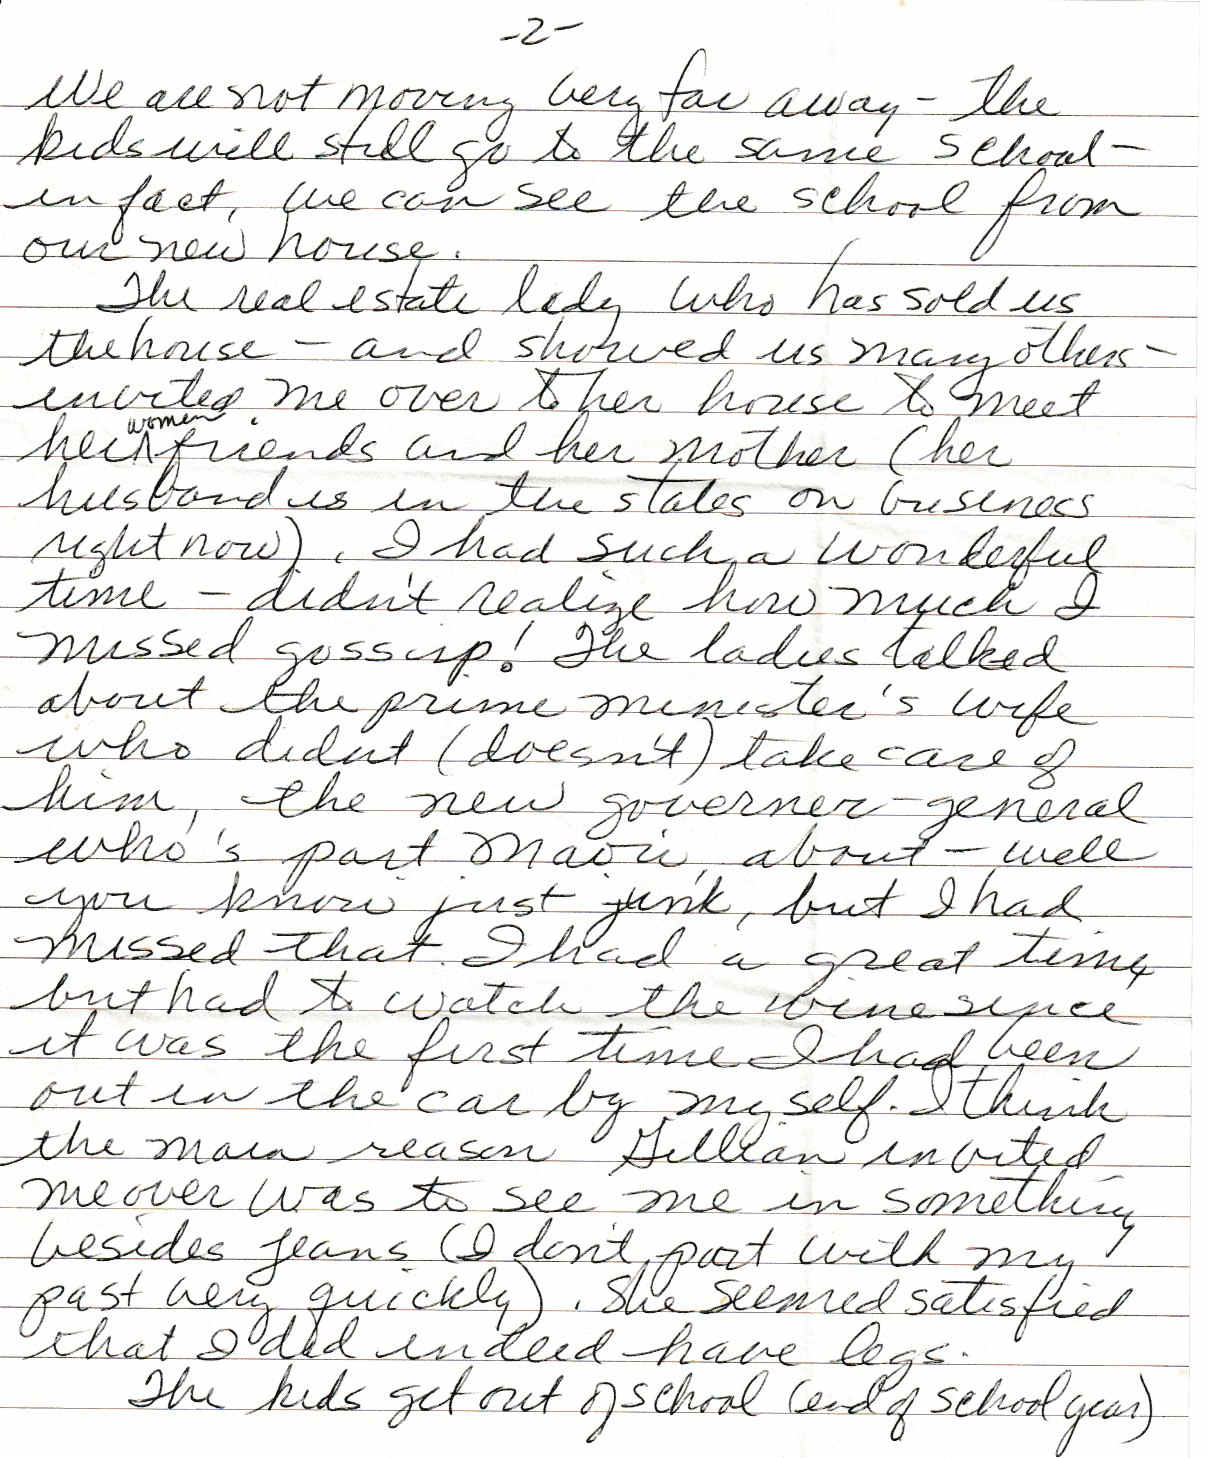 -2-
We are not moving very far away - the
kids will still go to the same school -
in fact, we can see the school from
our new house.
The real estate lady who has sold us
the house - and showed us many others -
invited me over to her house to meet
her women friends and her mother (her
husband is in the states on business
right now). I had such a wonderful
time - didn't realize how much I
missed gossip! The ladies talked
about the prime minister's wife
who didn't (doesn't) take care of
him, the new governer-general
who's part Maori, about - well
you know just junk, but I had
missed that. I had a great time,
but had to watch the wine since
it was the first time I had been
out in the car by myself. I think
the main reason Gillian invited
me over was to see me in something
besides jeans (I don't part with my
past very quickly). She seemed satisfied
that I did indeed have legs.
The kids get out of school (end of school year)